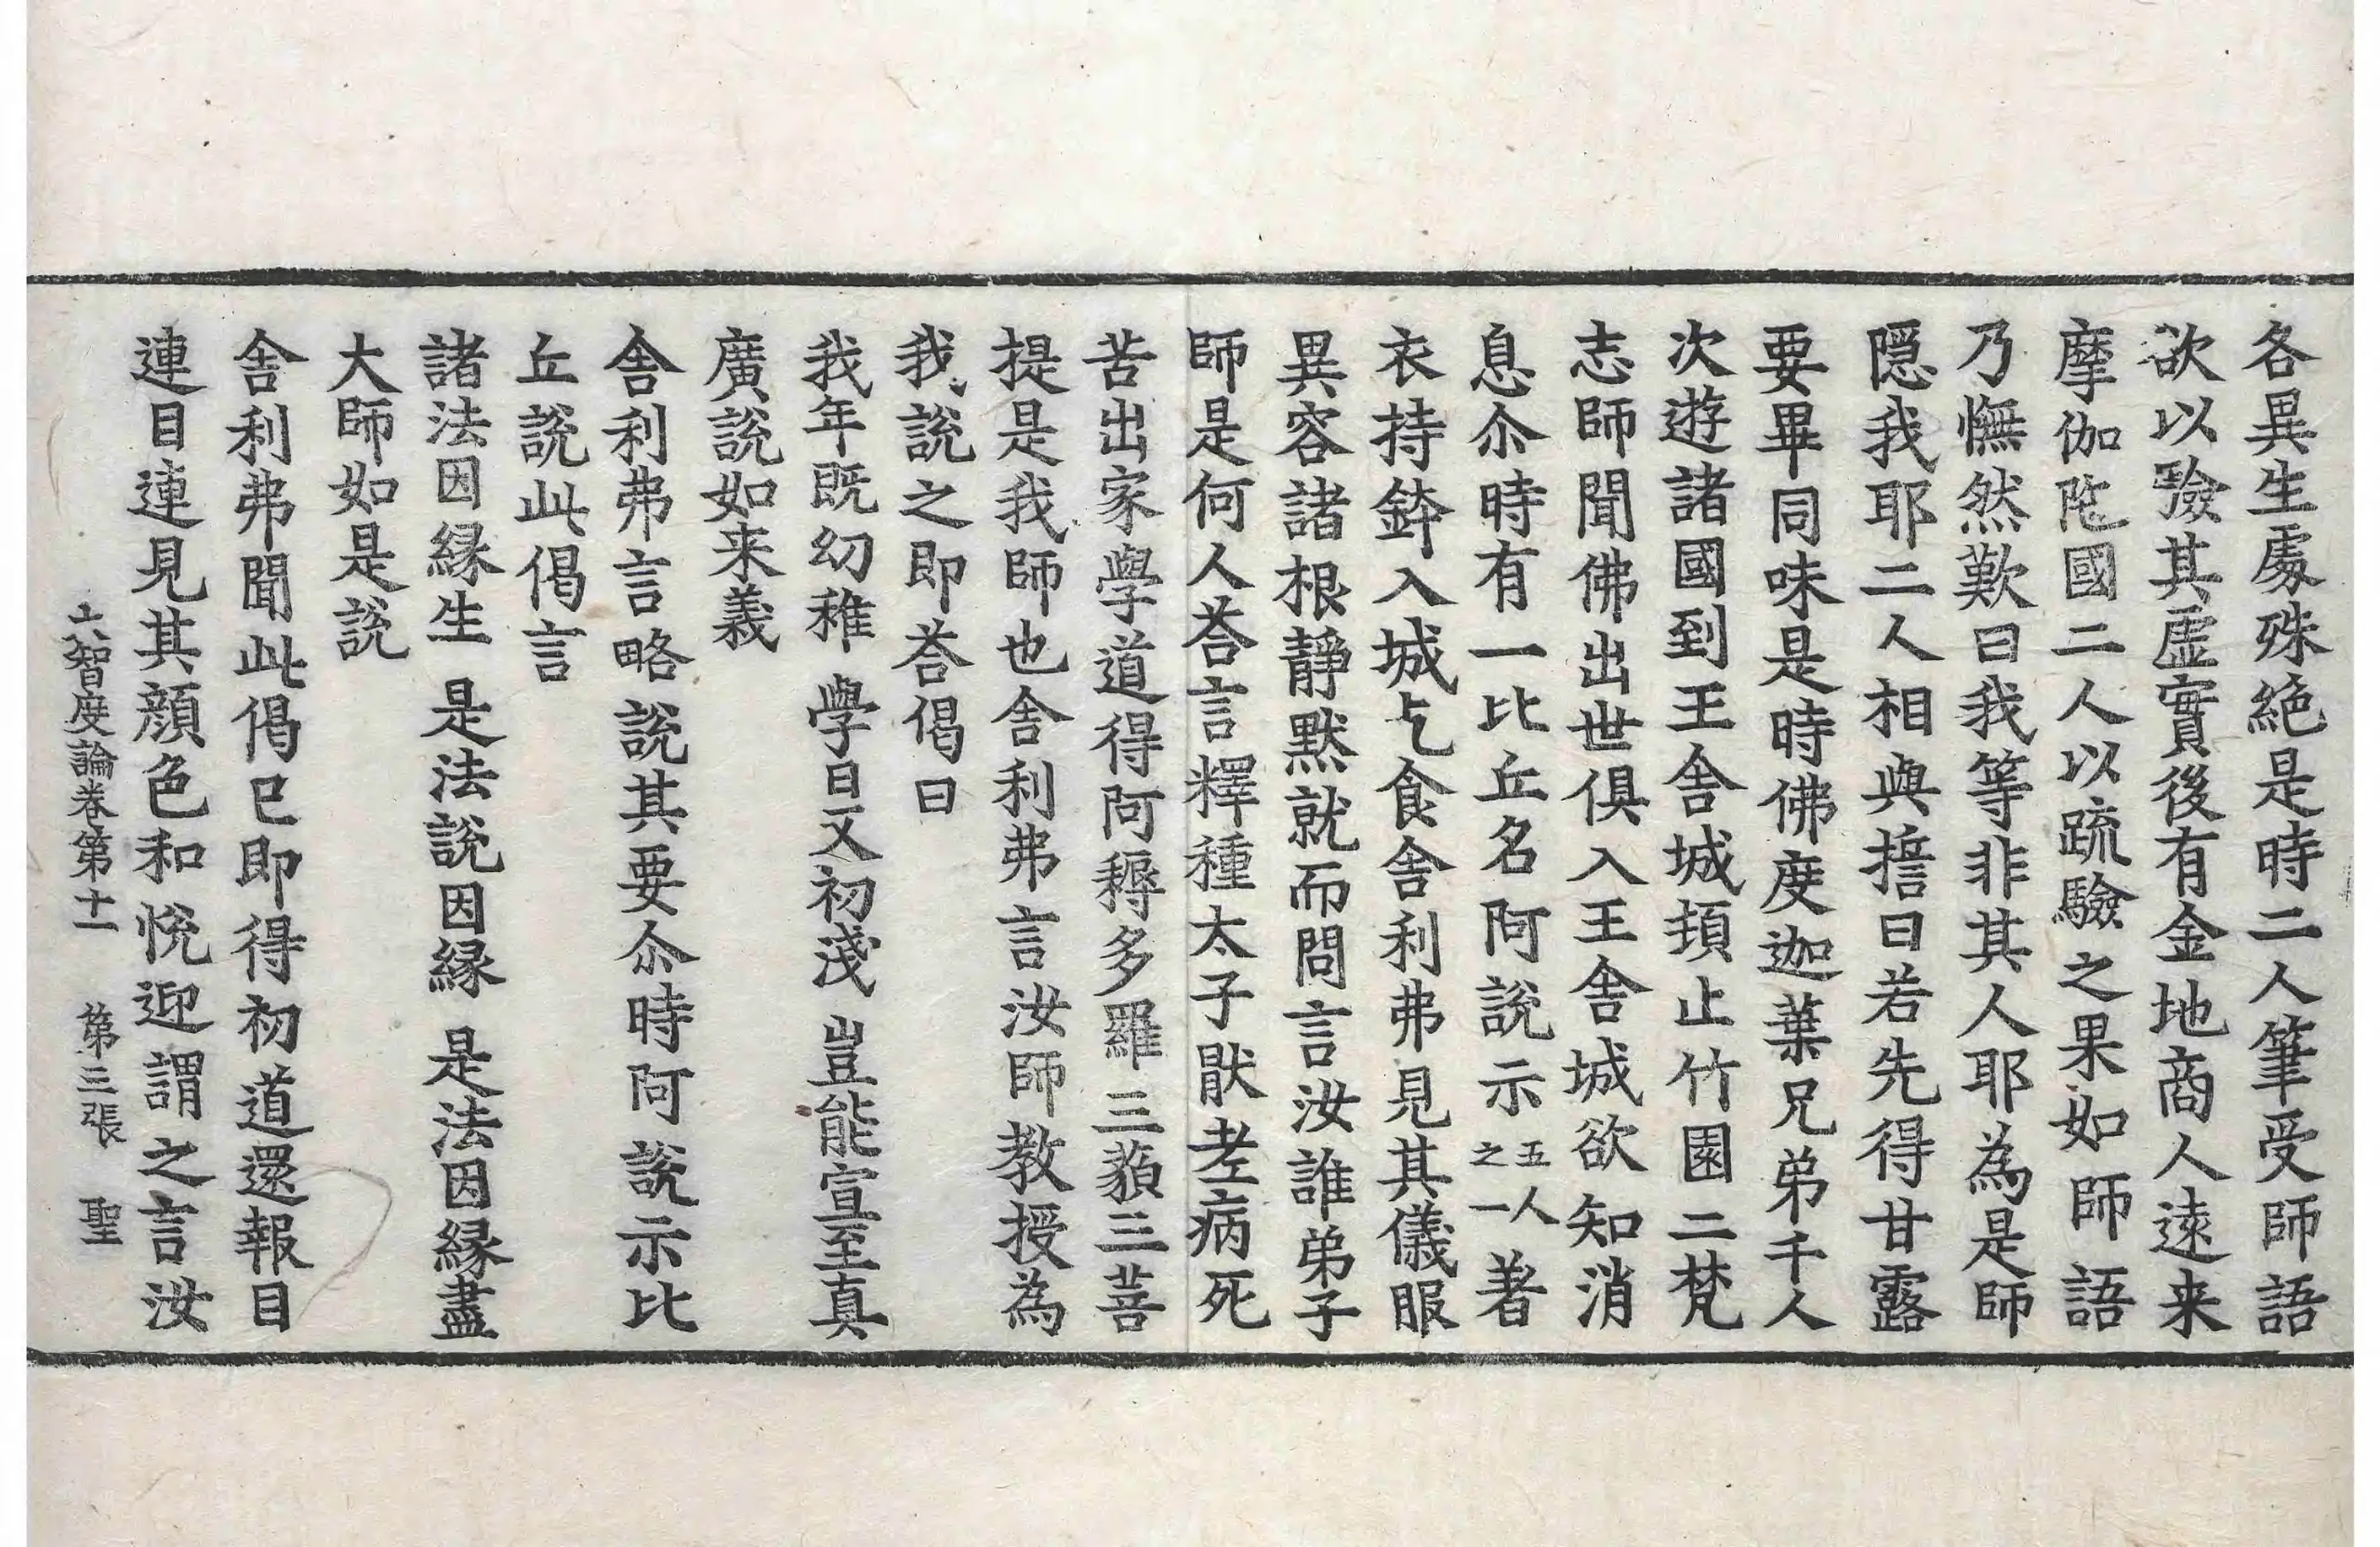 各異生處殊絶是時二人筆受師語
欲以驗其虛實後有金地商人遠来
摩伽陁國二人以䟽驗之果如師語
乃憮然歎曰我等非其人耶為是師
隱我耶二人相與誓曰若先得甘露
要畢同味是時佛度迦葉兄弟千人
次遊諸國到王舍城頓止竹園二梵
志師聞佛出世俱入王舍城欲知消
息尒時有一比丘名阿說示五人之一著
衣持鉢入城乞食舍利弗見其儀服
異容諸根靜默就而問言汝誰弟子
師是何人荅言釋種太子猒老病死
苦出家學道得阿耨多羅三藐三菩
提是我師也舍利弗言汝師教授為
我說之即荅偈曰
我年既幼稚 學日又初淺 豈能宣至真
廣說如来義
舍利弗言略說其要尒時阿說示比
丘說此偈言
諸法因縁生 是法說因縁 是法因縁盡
大師如是說
舍利弗聞此偈已即得初道還報目
連目連見其顔色和悅迎謂之言汝
大智度論卷第十一 第三張 聖